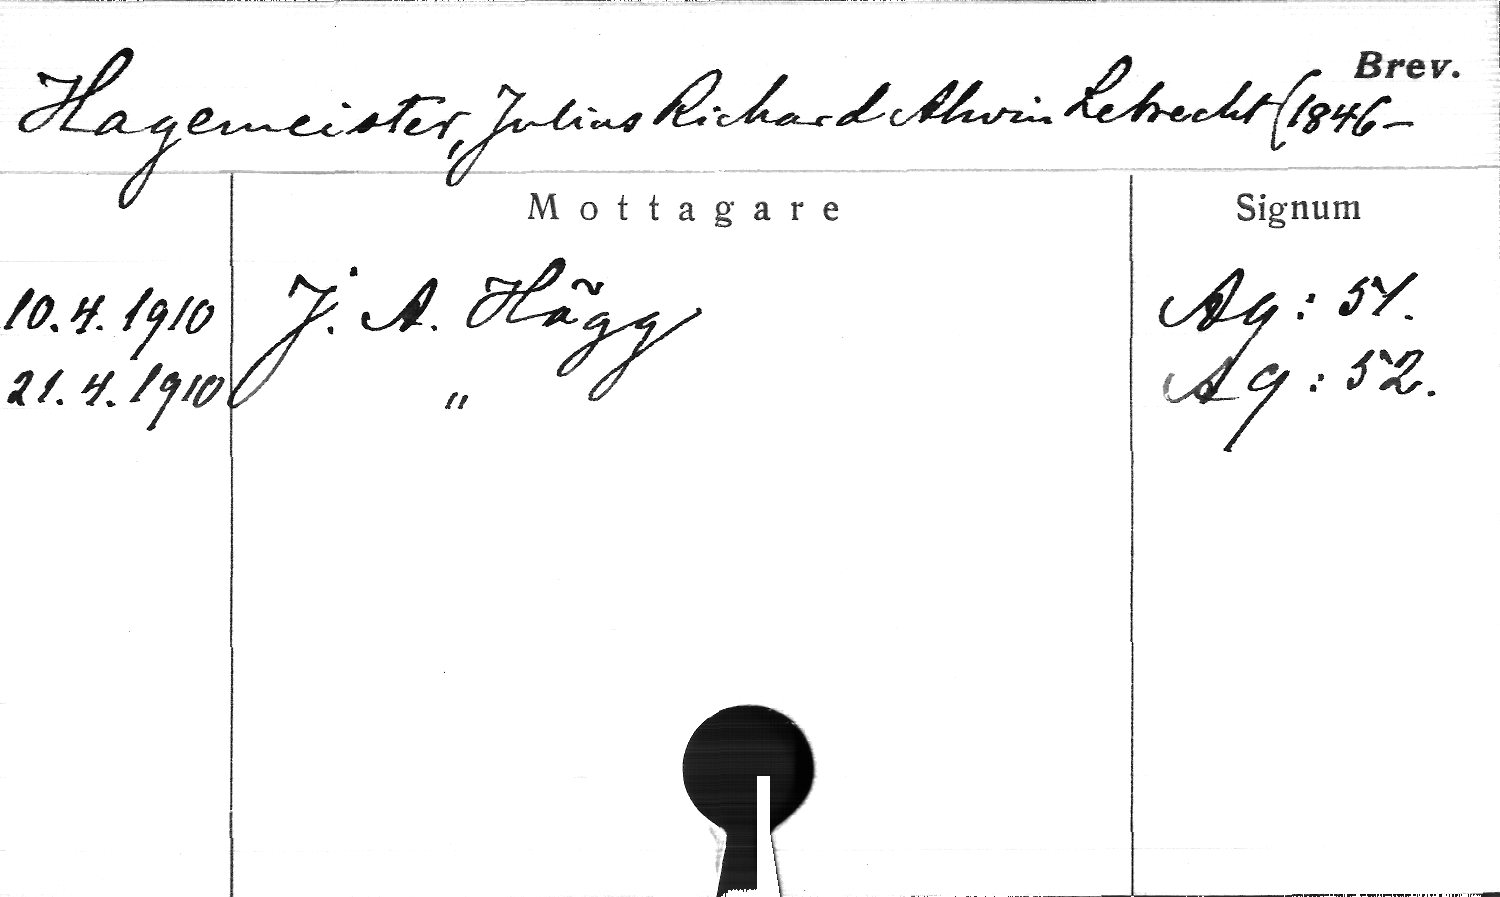 Brev.
Hagemeister, Julius Richard Alwin Lebrecht (1846–
Mottagare Signum
10.4.1910 J. A. Hägg Ag: 51.
21.4.1910 " Ag: 52.